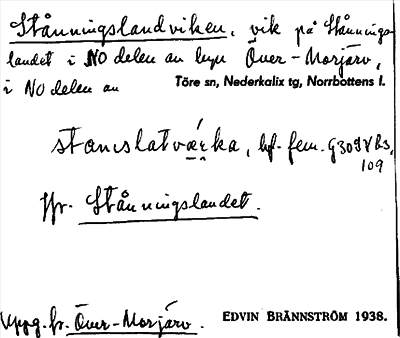 Stånningslandviken, vik på Stånnings-
landet i NO delen av byn Över-Morjärv,
i NO delen av Töre sn, Nederkalix tg, Norrbottens l.
stancslatværka, bf. fem. G309 V B3,
109
Jfr. Stånningslandet.
Uppg. fr. Över-Morjärv. EDVIN BRÄNNSTRÖM 1938.